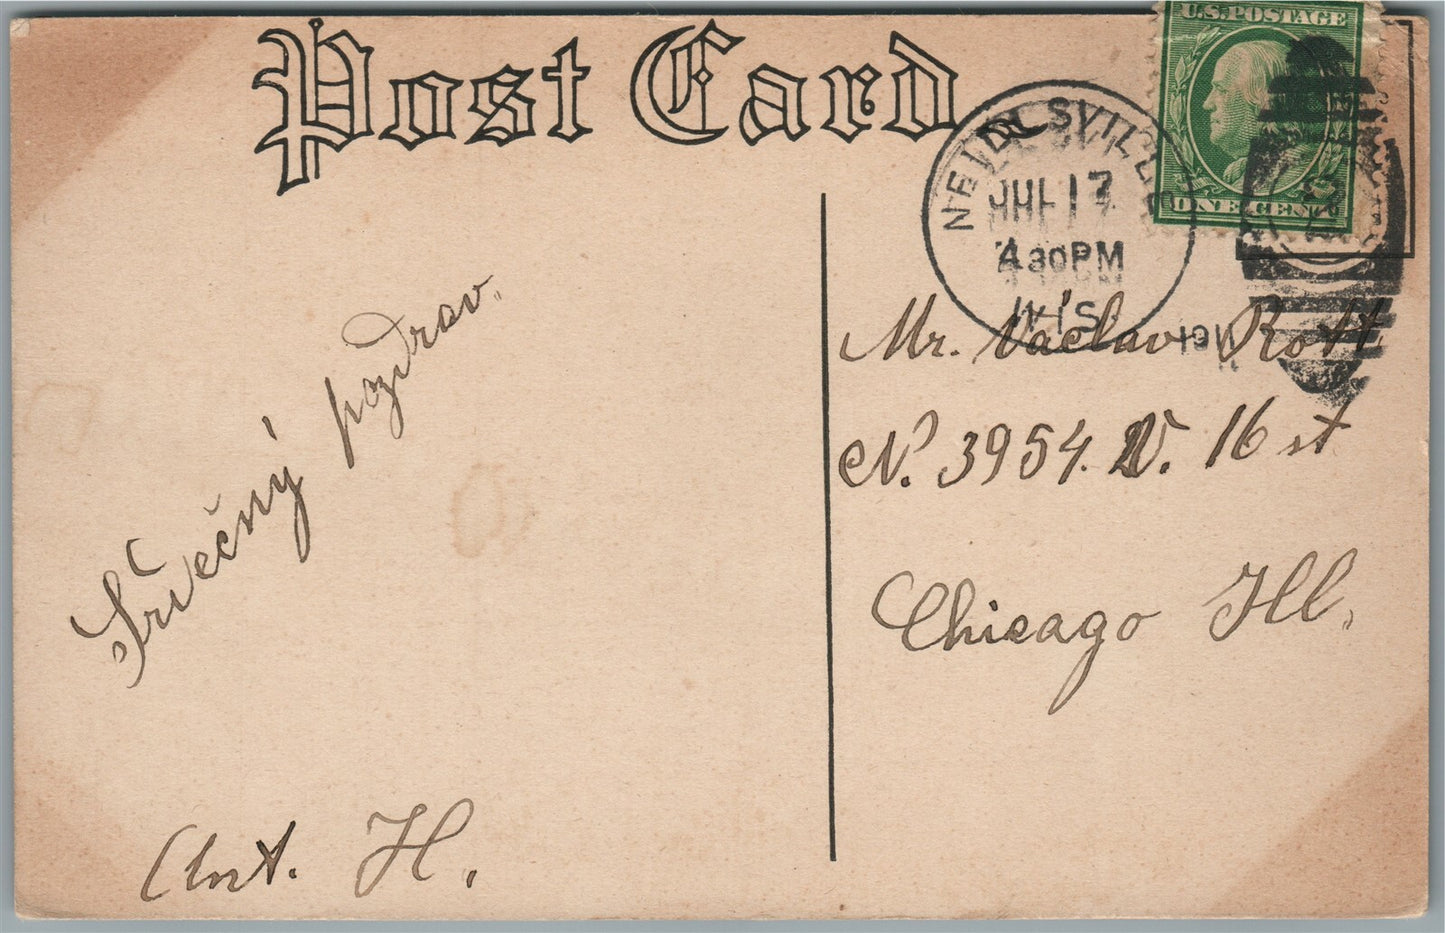 Post Card
U.S. POSTAGE
ONE CENT
JUL 17
4 30 PM
WIS.
1911
Mr. Václav Rott
N. 3954. W. 16 st
Chicago Ill.
Srdečný pozdrav.
Ant. H.